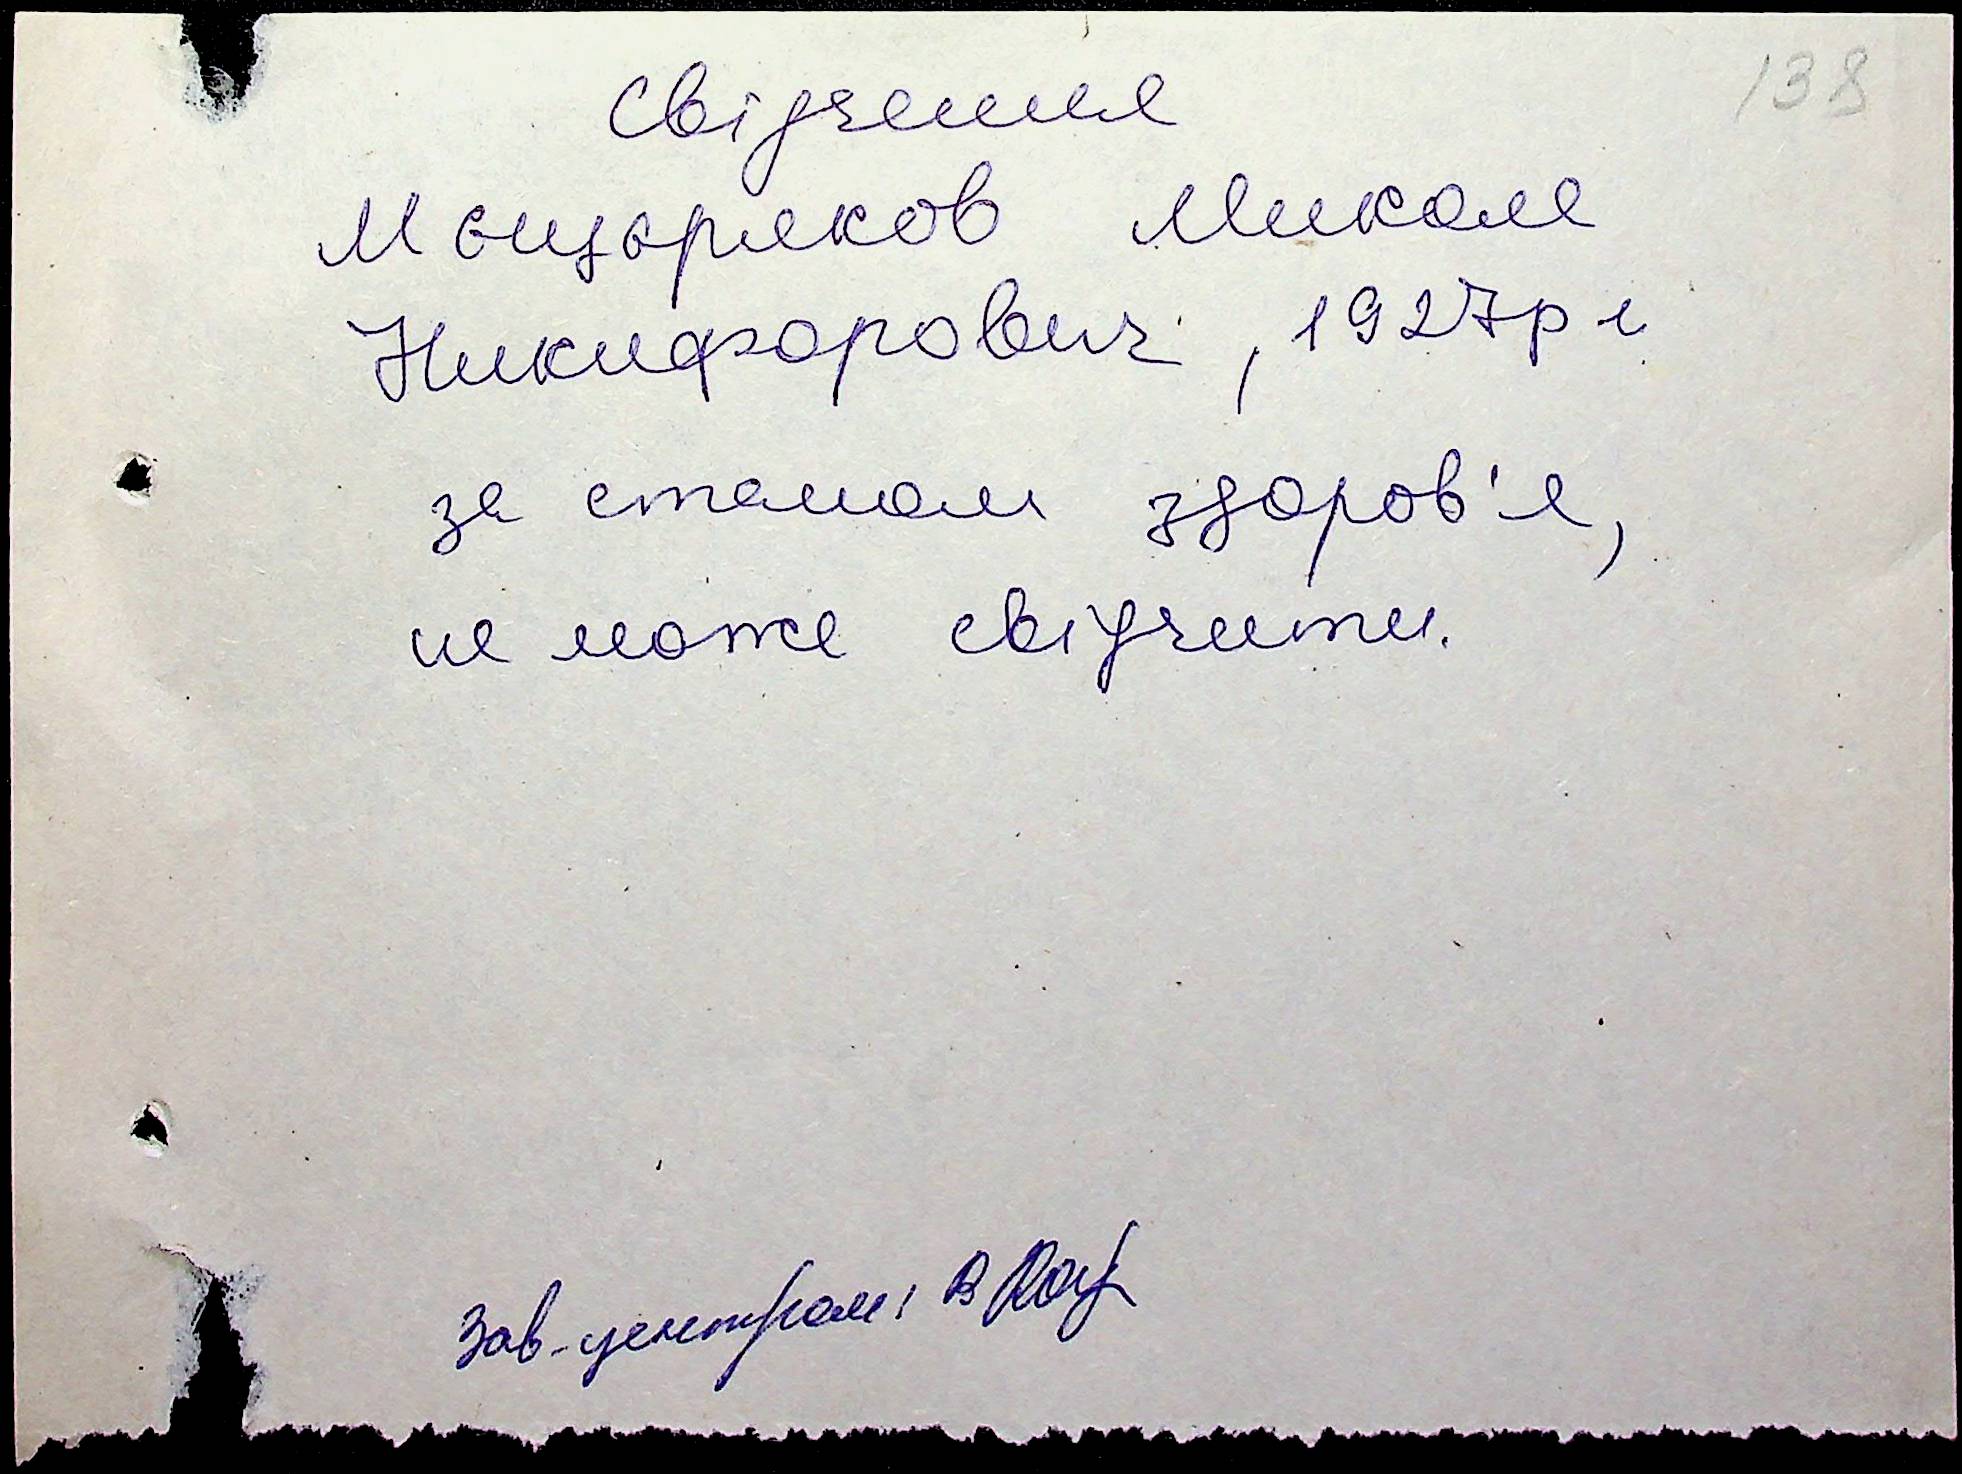 138
Свідчення
Мещеряков Микола
Никифорович, 1927р н
за станом здоров'я,
не може свідчити.
Зав. центром: В